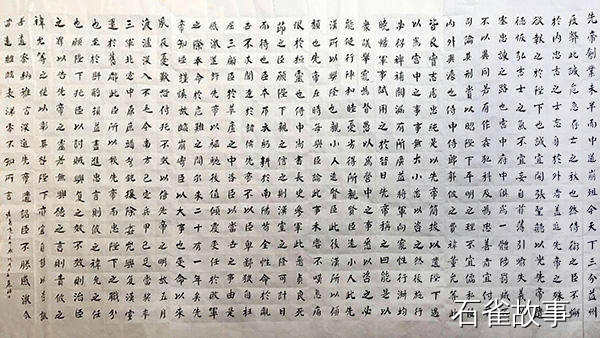 先帝創業未半而中道崩殂今天下三分益州
疲弊此誠危急存亡之秋也然侍衛之臣不懈
於內忠志之士忘身於外者蓋追先帝之殊遇
欲報之於陛下也誠宜開張聖聽以光先帝遺
德恢弘志士之氣不宜妄自菲薄引喻失義以
塞忠諫之路也宮中府中俱為一體陟罰臧否
不宜異同若有作奸犯科及為忠善者宜付有
司論其刑賞以昭陛下平明之理不宜偏私使
內外異法也侍中侍郎郭攸之費禕董允等此
皆良實志慮忠純是以先帝簡拔以遺陛下愚
以為宮中之事事無大小悉以咨之然後施行
必得裨補闕漏有所廣益將軍向寵性行淑均
曉暢軍事試用之於昔日先帝稱之曰能是以
眾議舉寵為督愚以為營中之事悉以咨之必
能使行陣和睦優劣得所親賢臣遠小人此先
漢所以興隆也親小人遠賢臣此後漢所以傾
頹也先帝在時每與臣論此事未嘗不嘆息痛
恨於桓靈也侍中尚書長史參軍此悉貞良死
節之臣願陛下親之信之則漢室之隆可計日
而待也臣本布衣躬耕於南陽苟全性命於亂
世不求聞達於諸侯先帝不以臣卑鄙猥自枉
屈三顧臣於草廬之中咨臣以當世之事由是
感激遂許先帝以驅馳後值傾覆受任於敗軍
之際奉命於危難之間爾來二十有一年矣先
帝知臣謹慎故臨崩寄臣以大事也受命以來
夙夜憂歎恐付託不效以傷先帝之明故五月
渡瀘深入不毛今南方已定兵甲已足當獎率
三軍北定中原庶竭駑鈍攘除姦凶興復漢室
還於舊都此臣所以報先帝而忠陛下之職分
也至於斟酌損益進盡忠言則攸之禕允之任
也願陛下託臣以討賊興復之效不效則治臣
之罪以告先帝之靈若無興德之言則責攸之
禕允等之慢以彰其咎陛下亦宜自謀以諮諏
善道察納雅言深追先帝遺詔臣不勝受恩感激今
當遠離臨表涕零不知所言
石雀故事